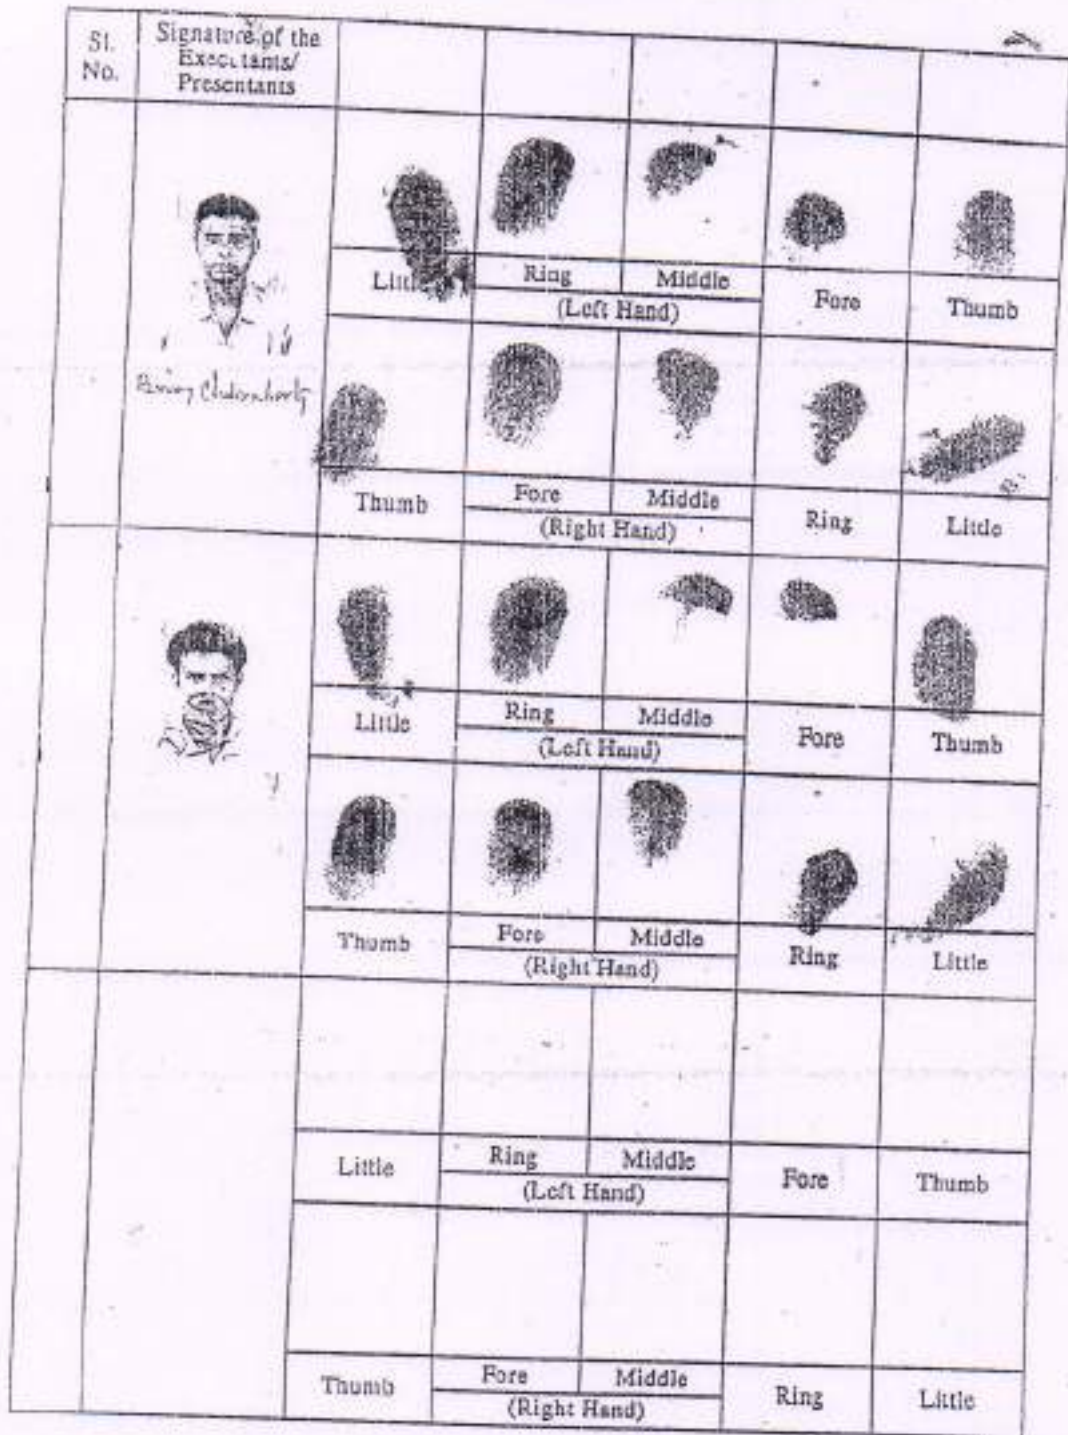 Sl. No.
Signature of the Executants/ Presentants
Little Ring Middle Fore Thumb
(Left Hand)
Chakraborty
Thumb Fore Middle Ring Little
(Right Hand)
Little Ring Middle Fore Thumb
(Left Hand)
Thumb Fore Middle Ring Little
(Right Hand)
Little Ring Middle Fore Thumb
(Left Hand)
Thumb Fore Middle Ring Little
(Right Hand)